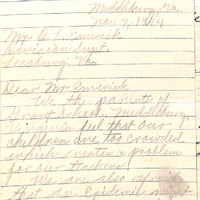 Middleburg, Va.
Nov 7, 1944
Mr. O. L. Emerick
Division Supt.
Leesburg, Va.
Dear Mr Emerick
We the parents of
Grant School, Middleburg,
Virginia feel that our
children are too crowded
which creates a problem
for our teachers.
We are also afraid
that an Epidemic might